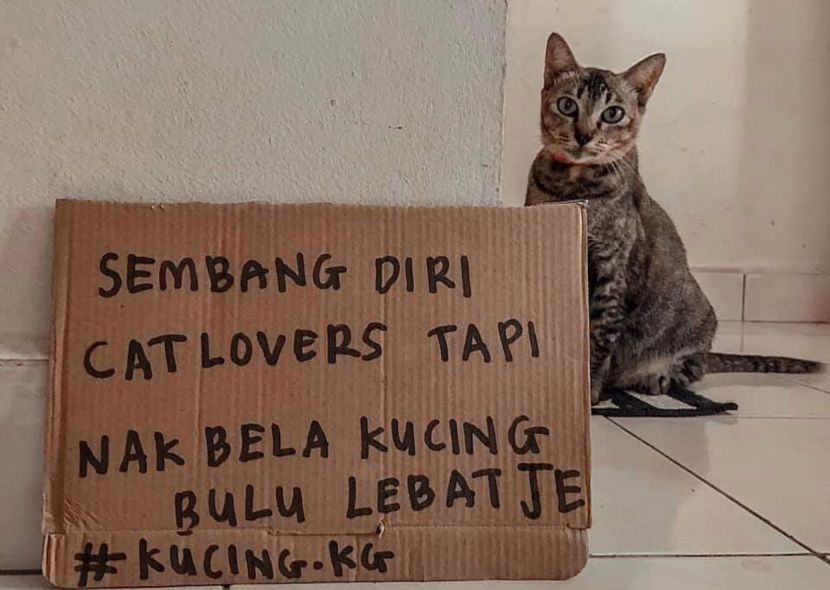 SEMBANG DIRI
CATLOVERS TAPI
NAK BELA KUCING
BULU LEBAT JE
#KUCING.KG